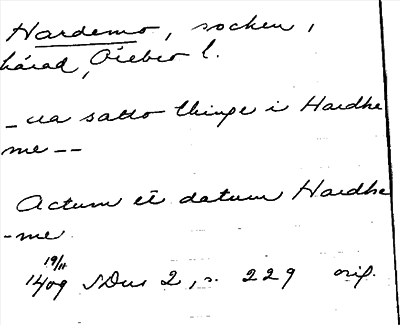 Hardemo, socken,
härad, Örebro l.
– – a satto thinge i Hardhe
me – –
Actum et datum Hardhe
-me
19/11
1409 SDns 2, s. 229 orig.